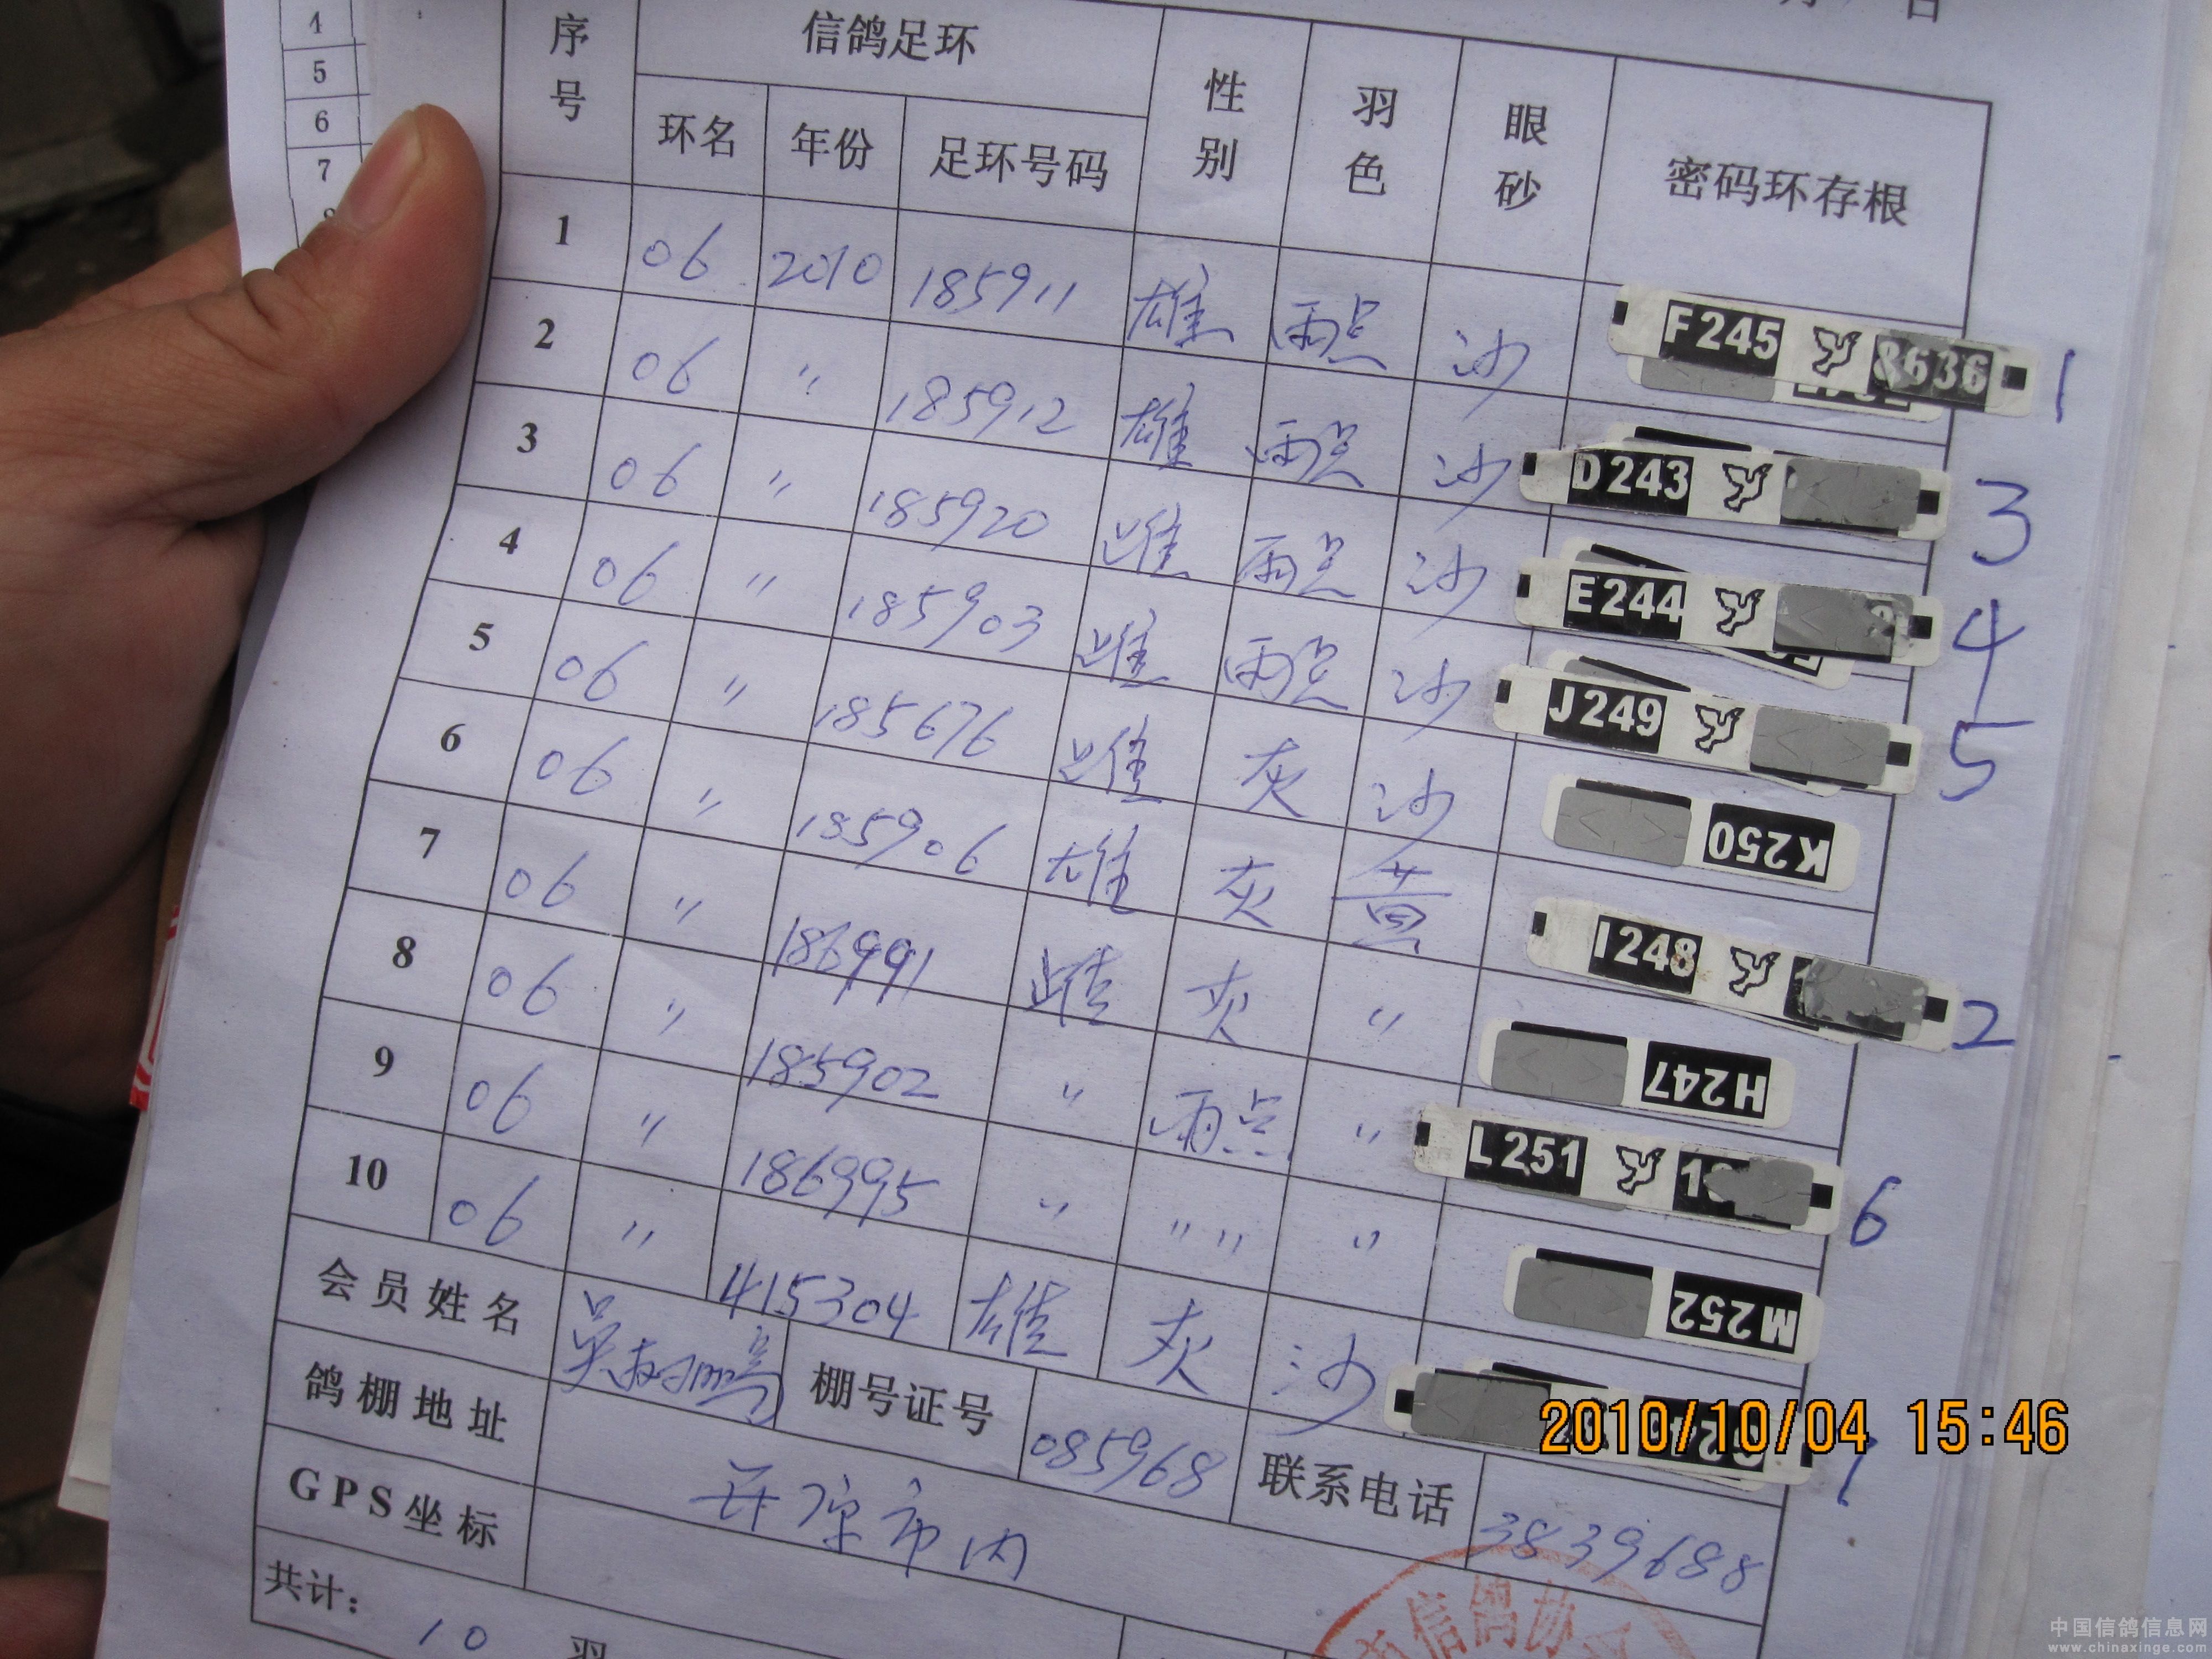 4
5
6
7
8
月 日
序号 信鸽足环 性别 羽色 眼砂 密码环存根
环名 年份 足环号码
1 06 2010 185911 雄 雨点 沙 F245 8636 1
2 06 〃 185912 雄 雨点 沙 D243 3
3 06 〃 185920 雌 雨点 沙 E244 4
4 06 〃 185903 雌 雨点 沙 J249 5
5 06 〃 185676 雌 灰 沙 K250
6 06 〃 185906 雄 灰 黄 I248 2
7 06 〃 186991 雌 灰 〃 H247
8 06 〃 185902 〃 雨点 〃 L251 6
9 06 〃 186995 〃 〃 〃 〃 M252
10 06 〃 415304 雄 灰 沙 7
会员姓名 吴 鹏 棚号证号 085968 联系电话 3839688
鸽棚地址 市内
GPS坐标
共计: 10 羽
信鸽协会
2010/10/04 15:46
中国信鸽信息网
www.chinaxinge.com